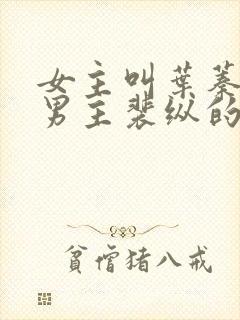 女主叫葉蓁
男主裴纵的
貧僧猪八戒